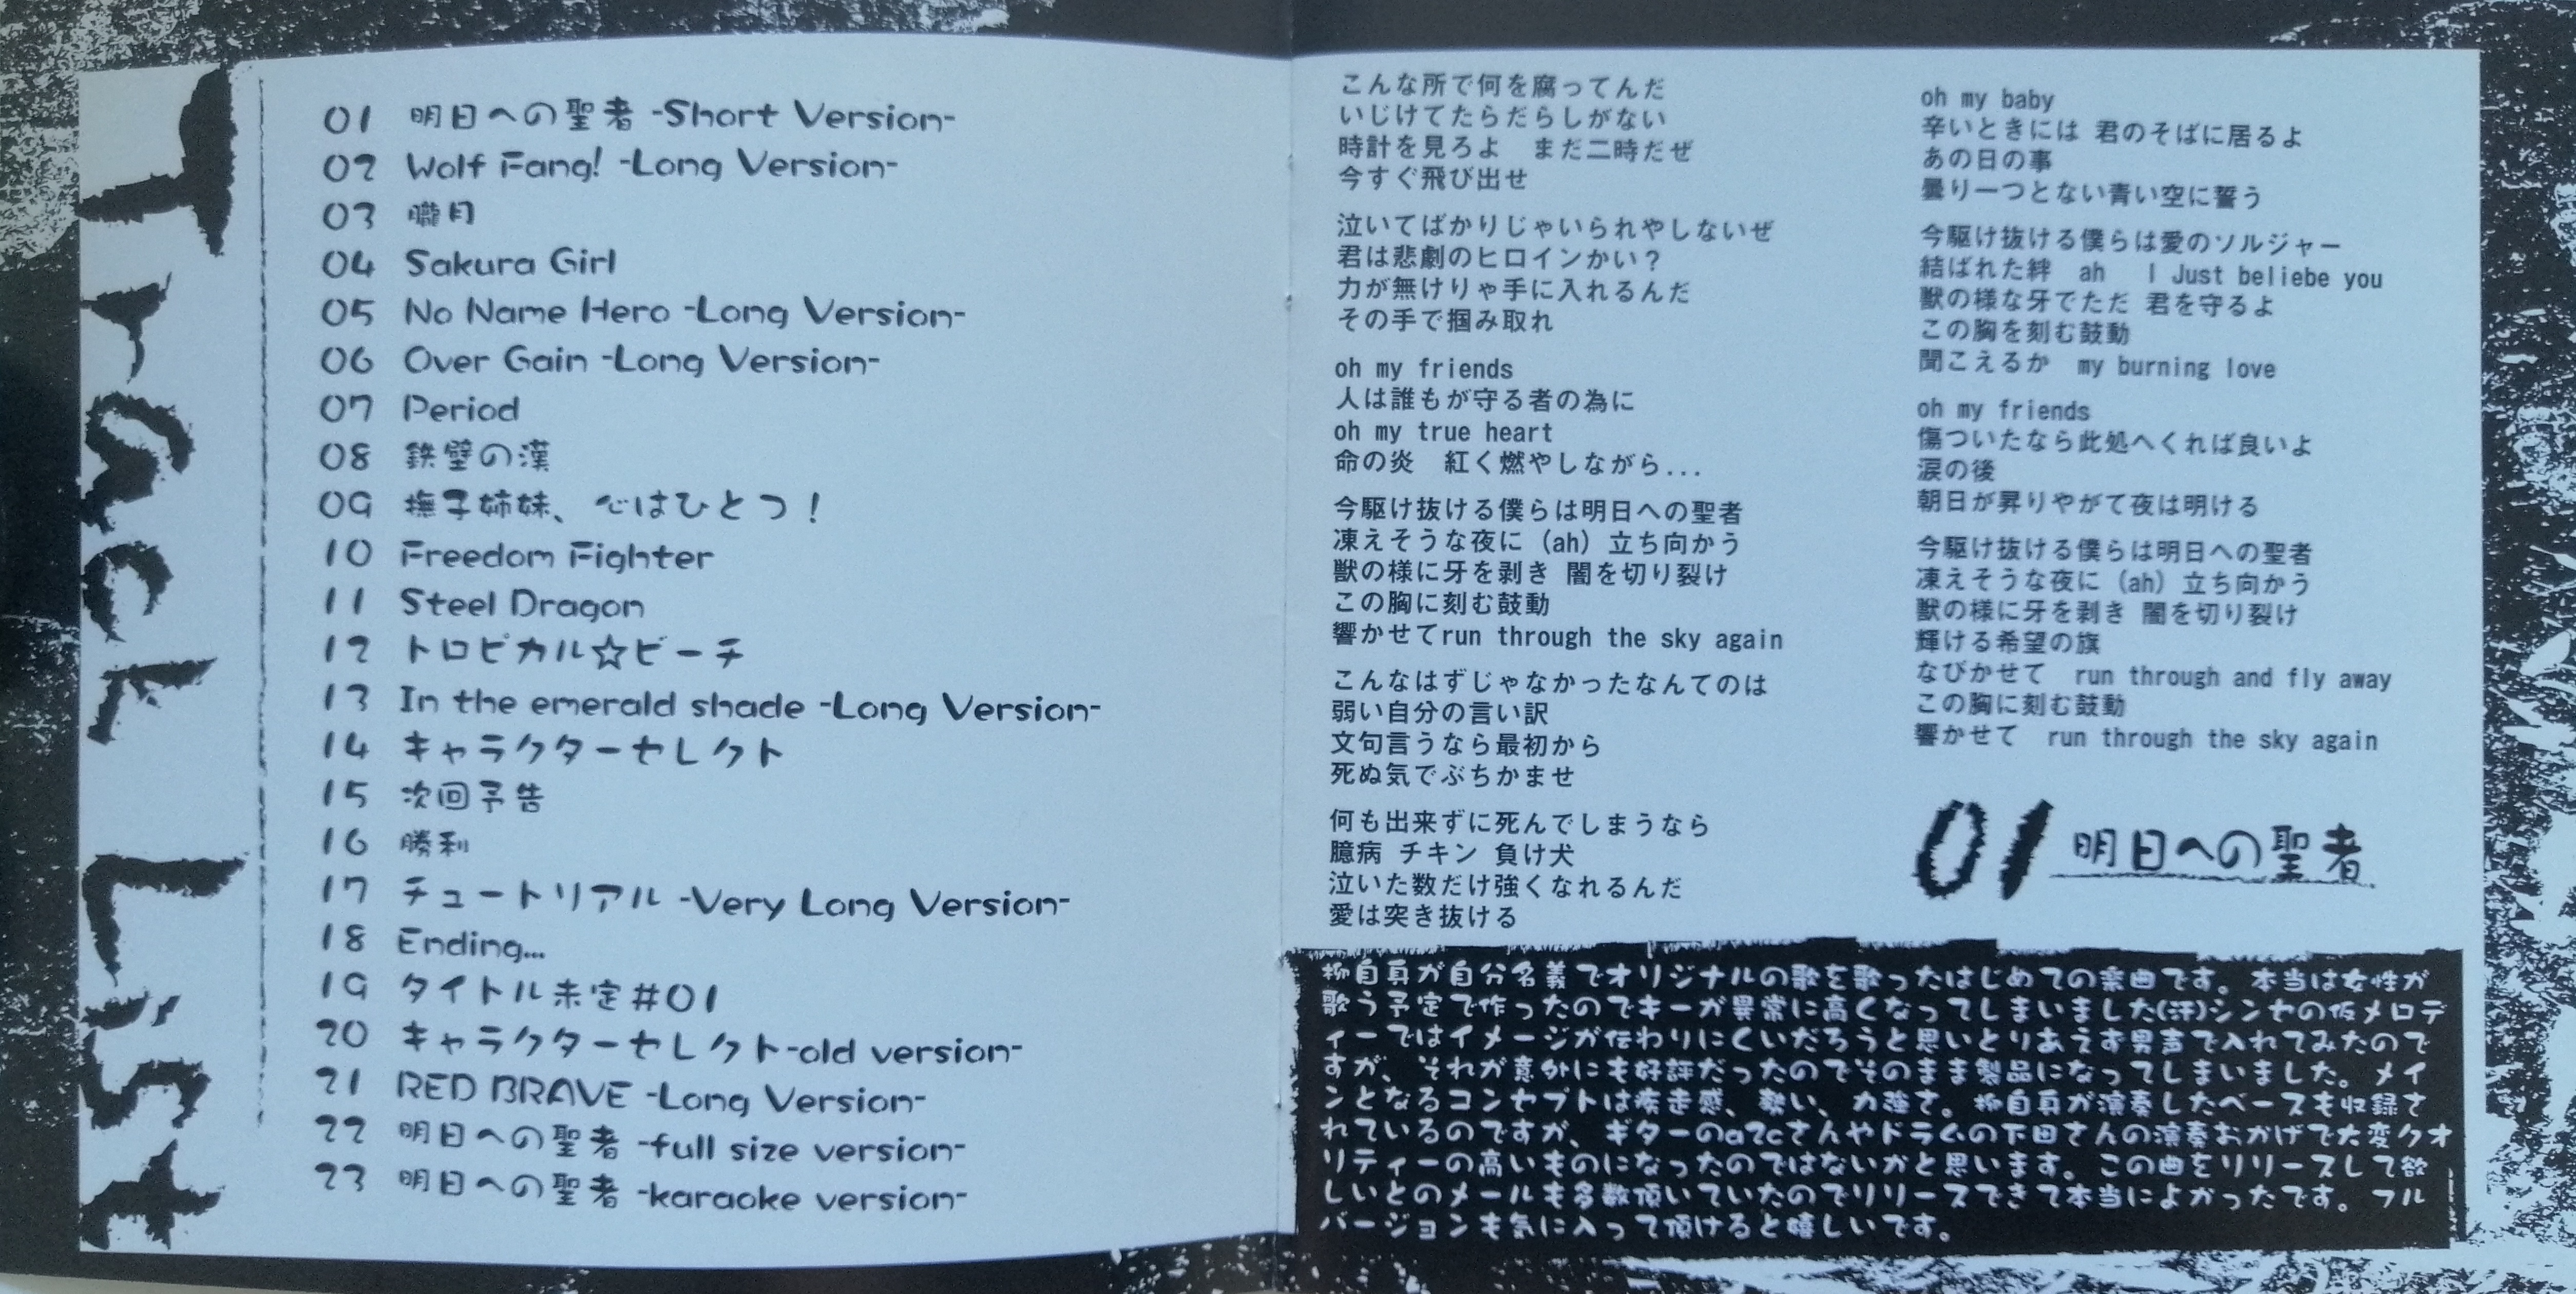 Tracl List
01 明日への聖者 -Short Version-
02 Wolf Fang! -Long Version-
03 朧月
04 Sakura Girl
05 No Name Hero -Long Version-
06 Over Gain -Long Version-
07 Period
08 鉄壁の漢
09 撫子姉妹、心はひとつ！
10 Freedom Fighter
11 Steel Dragon
12 トロピカル☆ビーチ
13 In the emerald shade -Long Version-
14 キャラクターセレクト
15 次回予告
16 勝利
17 チュートリアル -Very Long Version-
18 Ending...
19 タイトル未定#01
20 キャラクターセレクト-old version-
21 RED BRAVE -Long Version-
22 明日への聖者 -full size version-
23 明日への聖者 -karaoke version-
こんな所で何を腐ってんだ
いじけてたらだらしがない
時計を見ろよ　まだ二時だぜ
今すぐ飛び出せ
泣いてばかりじゃいられやしないぜ
君は悲劇のヒロインかい？
力が無けりゃ手に入れるんだ
その手で掴み取れ
oh my friends
人は誰もが守る者の為に
oh my true heart
命の炎　紅く燃やしながら...
今駆け抜ける僕らは明日への聖者
凍えそうな夜に (ah) 立ち向かう
獣の様に牙を剥き 闇を切り裂け
この胸に刻む鼓動
響かせてrun through the sky again
こんなはずじゃなかったなんてのは
弱い自分の言い訳
文句言うなら最初から
死ぬ気でぶちかませ
何も出来ずに死んでしまうなら
臆病 チキン 負け犬
泣いた数だけ強くなれるんだ
愛は突き抜ける
oh my baby
辛いときには 君のそばに居るよ
あの日の事
曇り一つとない青い空に誓う
今駆け抜ける僕らは愛のソルジャー
結ばれた絆　ah　I Just beliebe you
獣の様な牙でただ 君を守るよ
この胸を刻む鼓動
聞こえるか　my burning love
oh my friends
傷ついたなら此処へくれば良いよ
涙の後
朝日が昇りやがて夜は明ける
今駆け抜ける僕らは明日への聖者
凍えそうな夜に (ah) 立ち向かう
獣の様に牙を剥き 闇を切り裂け
輝ける希望の旗
なびかせて　run through and fly away
この胸に刻む鼓動
響かせて　run through the sky again
01 明日への聖者
柳自身が自分名義でオリジナルの歌を歌ったはじめての楽曲です。本当は女性が
歌う予定で作ったのでキーが異常に高くなってしまいました(汗)シンセの仮メロデ
ィーではイメージが伝わりにくいだろうと思いとりあえず男声で入れてみたので
すが、それが意外にも好評だったのでそのまま製品になってしまいました。メイ
ンとなるコンセプトは疾走感、勢い、力強さ。柳自身が演奏したベースも収録さ
れているのですが、ギターのa2cさんやドラムの下田さんの演奏おかげで大変クオ
リティーの高いものになったのではないかと思います。この曲をリリースして欲
しいとのメールも多数頂いていたのでリリースできて本当によかったです。フル
バージョンも気に入って頂けると嬉しいです。